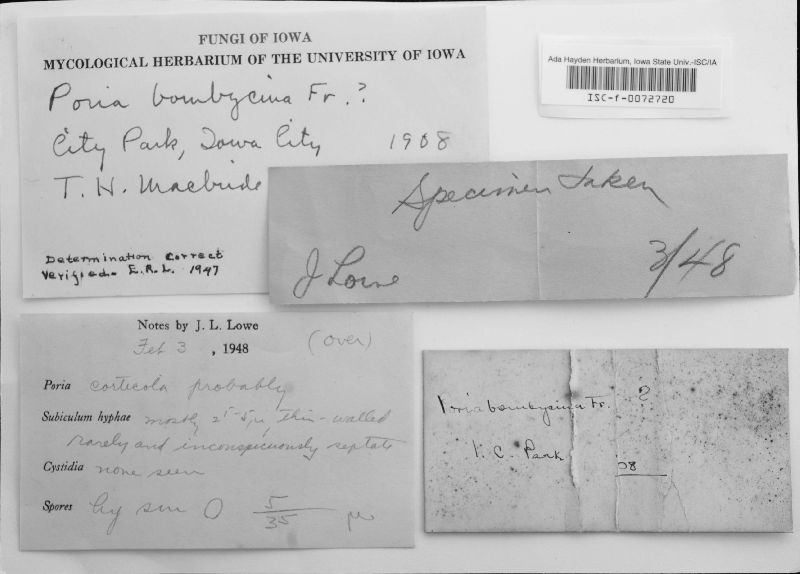 FUNGI OF IOWA
MYCOLOGICAL HERBARIUM OF THE UNIVERSITY OF IOWA
Poria bombycina Fr.?
City Park, Iowa City 1908
T. H. Macbride
Determination correct
Verified. E.R.L. 1947
Ada Hayden Herbarium, Iowa State Univ.-ISC/IA
ISC-f-0072720
Specimen taken
J Lowe 3/48
Notes by J. L. Lowe
Feb 3, 1948 (over)
Poria corticola probably
Subiculum hyphae mostly thin-walled
rarely and inconspicuously septate
Cystidia none seen
Spores hy sm
Poria bombycina Fr. ?
I. C. Park
08